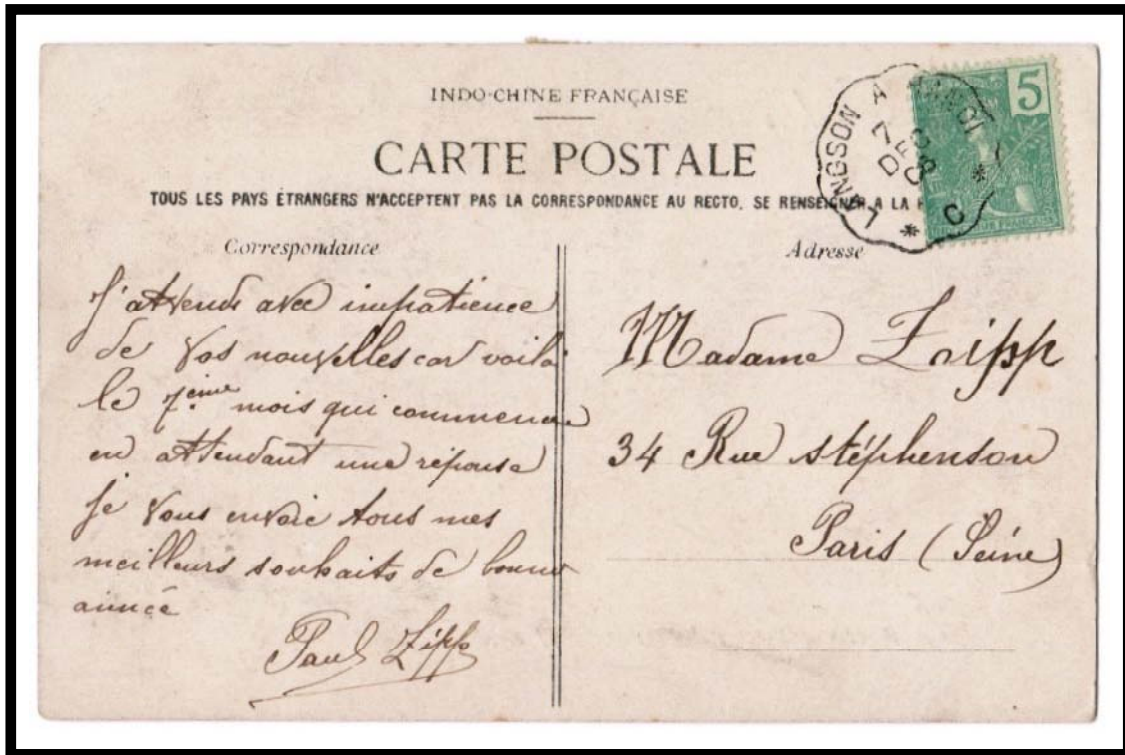 INDO-CHINE FRANÇAISE
CARTE POSTALE
TOUS LES PAYS ÉTRANGERS N'ACCEPTENT PAS LA CORRESPONDANCE AU RECTO. SE RENSEIGNER A LA
LANGSON A HANOI
7
DEC
08
C
5
Correspondance
J'attends avec impatience
de vos nouvelles car voilà
le 7ème mois qui commence
en attendant une réponse
je vous envoie tous mes
meilleurs souhaits de bonne
année
Paul Zipp
Adresse
Madame Zipp
34 Rue stéphenson
Paris (Seine)